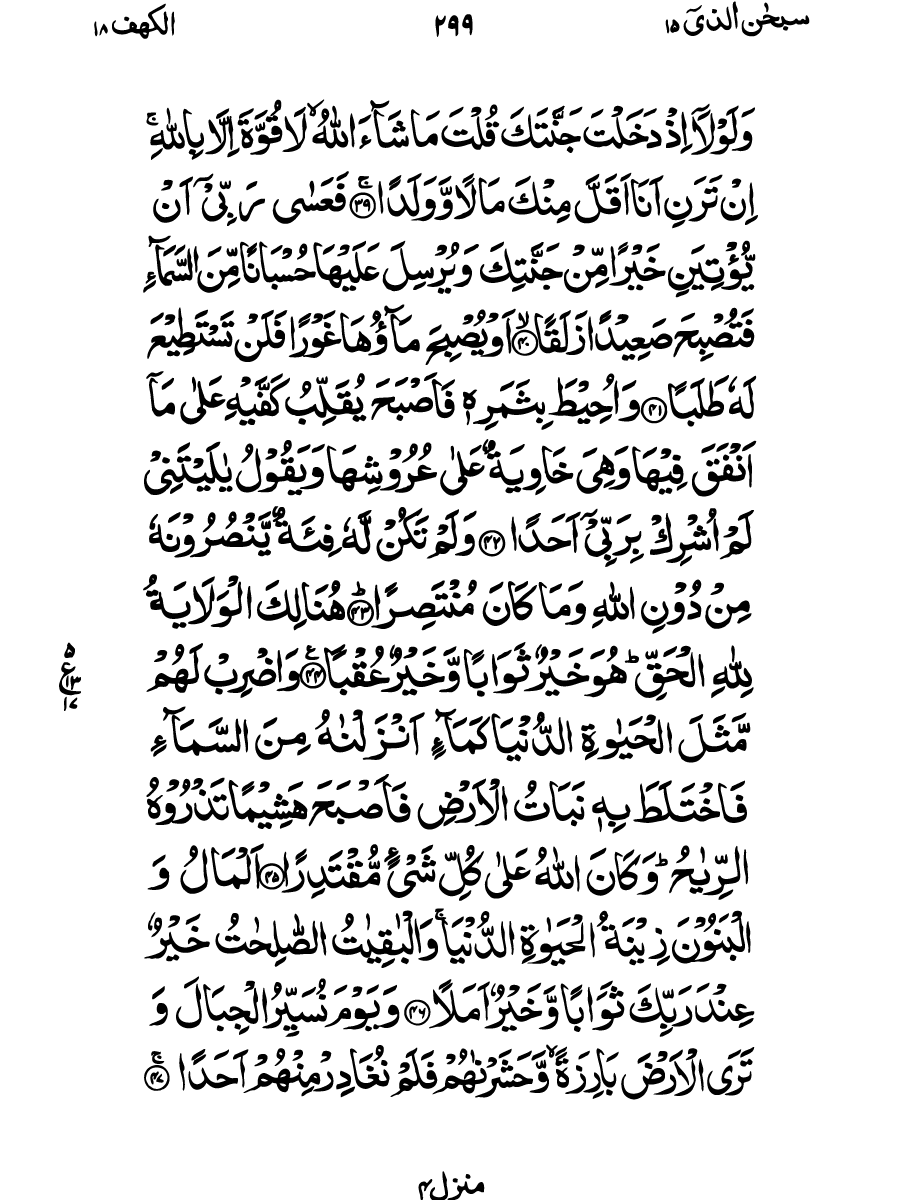 سبحٰن الذیٓ ۱۵ ۲۹۹ الکهف ۱۸
وَلَوْلَاۤ اِذْ دَخَلْتَ جَنَّتَكَ قُلْتَ مَا شَآءَ اللّٰهُ ۙ لَا قُوَّةَ اِلَّا بِاللّٰهِ ۚ
اِنْ تَرَنِ اَنَا اَقَلَّ مِنْكَ مَالًا وَّوَلَدًا ۚ ﴿۳۹﴾ فَعَسٰی رَبِّیْۤ اَنْ
یُّؤْتِیَنِ خَیْرًا مِّنْ جَنَّتِكَ وَیُرْسِلَ عَلَیْهَا حُسْبَانًا مِّنَ السَّمَآءِ
فَتُصْبِحَ صَعِیْدًا زَلَقًا ۙ ﴿۴۰﴾ اَوْ یُصْبِحَ مَآؤُهَا غَوْرًا فَلَنْ تَسْتَطِیْعَ
لَهٗ طَلَبًا ﴿۴۱﴾ وَاُحِیْطَ بِثَمَرِهٖ فَاَصْبَحَ یُقَلِّبُ كَفَّیْهِ عَلٰی مَاۤ
اَنْفَقَ فِیْهَا وَهِیَ خَاوِیَةٌ عَلٰی عُرُوْشِهَا وَیَقُوْلُ یٰلَیْتَنِیْ
لَمْ اُشْرِكْ بِرَبِّیْۤ اَحَدًا ﴿۴۲﴾ وَلَمْ تَكُنْ لَّهٗ فِئَةٌ یَّنْصُرُوْنَهٗ
مِنْ دُوْنِ اللّٰهِ وَمَا كَانَ مُنْتَصِرًا ؕ ﴿۴۳﴾ هُنَالِكَ الْوَلَایَةُ
لِلّٰهِ الْحَقِّ ؕ هُوَ خَیْرٌ ثَوَابًا وَّخَیْرٌ عُقْبًا ﴿۴۴﴾ ع وَاضْرِبْ لَهُمْ
۵ ع ۱۳ ۱۷
مَّثَلَ الْحَیٰوةِ الدُّنْیَا كَمَآءٍ اَنْزَلْنٰهُ مِنَ السَّمَآءِ
فَاخْتَلَطَ بِهٖ نَبَاتُ الْاَرْضِ فَاَصْبَحَ هَشِیْمًا تَذْرُوْهُ
الرِّیٰحُ ؕ وَكَانَ اللّٰهُ عَلٰی كُلِّ شَیْءٍ مُّقْتَدِرًا ﴿۴۵﴾ اَلْمَالُ وَ
الْبَنُوْنَ زِیْنَةُ الْحَیٰوةِ الدُّنْیَا ۚ وَالْبٰقِیٰتُ الصّٰلِحٰتُ خَیْرٌ
عِنْدَ رَبِّكَ ثَوَابًا وَّخَیْرٌ اَمَلًا ﴿۴۶﴾ وَیَوْمَ نُسَیِّرُ الْجِبَالَ وَ
تَرَی الْاَرْضَ بَارِزَةً ۙ وَّحَشَرْنٰهُمْ فَلَمْ نُغَادِرْ مِنْهُمْ اَحَدًا ۚ ﴿۴۷﴾
منزل۴